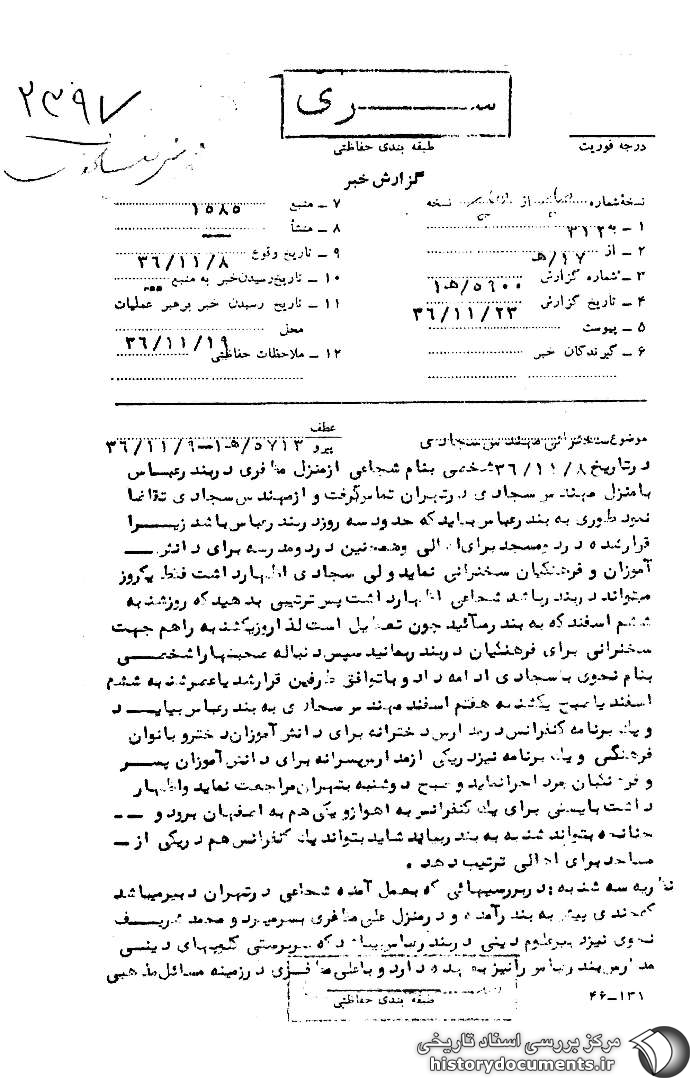 ۲۳۹۷
ســـری
درجه فوریت
طبقه بندی حفاظتی
گزارش خبر
نسخهٔ شماره از نسخه
۱ ـ به ۳۱۲
۲ ـ از ۱۷/هـ
۳ ـ شماره گزارش ۵۶۰۰/هـ۱
۴ ـ تاریخ گزارش ۳۶/۱۱/۲۳
۵ ـ پیوست
۶ ـ گیرندگان خبر
۷ ـ منبع ۱۵۸۵
۸ ـ منشأ
۹ ـ تاریخ وقوع ۳۶/۱۱/۸
۱۰ ـ تاریخ رسیدن خبر به منبع
۱۱ ـ تاریخ رسیدن خبر برهبر عملیات
محل ۳۶/۱۱/۱۹
۱۲ ـ ملاحظات حفاظتی
موضوع سخنرانی مهندس سجادی
عطف
پیرو ۵۷۱۳/هـ۱ــ۳۶/۱۱/۹
در تاریخ ۳۶/۱۱/۸ شخصی بنام شجاعی از منزل مظفری در بندرعباس
با منزل مهندس سجادی در تهران تماس گرفت و از مهندس سجادی تقاضا
نمود طوری به بندرعباس بیاید که حدود سه روز در بندرعباس باشد زیـــرا
قرار شده در دو مسجد برای اهالی و همچنین در دو مدرسه برای دانش ــ
آموزان و فرهنگیان سخنرانی نماید ولی سجادی اظهار داشت فقط یکروز
میتواند در بندر باشد شجاعی اظهار داشت پس ترتیبی بدهید که روز شنبه
ششم اسفند که به بندر میآئید چون تعطیل است لذا روز یکشنبه را هم جهت
سخنرانی برای فرهنگیان در بندر بمانید سپس دنباله صحبتها را شخصـــی
بنام نحوی با سجادی ادامه داد و با توافق طرفین قرار شد یا عصر شنبه ششم
اسفند یا صبح یکشنبه هفتم اسفند مهندس سجادی به بندرعباس بیایـــد
و یک برنامه کنفرانس در مدارس دخترانه برای دانش آموزان دختر و بانوان
فرهنگی و یک برنامه نیز در یکی از مدارس پسرانه برای دانش آموزان پســر
و فرهنگیان مرد اجرا نماید و صبح دوشنبه بتهران مراجعت نماید و اظهار
داشت بایستی برای یک کنفرانس به اهواز و یکی هم به اصفهان برود و ــ ــ
چنانچه بتواند شنبه به بندر بیاید شاید بتواند یک کنفرانس هم در یکی از ــ
مساجد برای اهالی ترتیب دهد .
نظریه سه شنبه : در بررسیهائی که بعمل آمده شجاعی در تهران دبیر میباشد
که چندی پیش به بندر آمده و در منزل علی مظفری بسر میبرد و محمد شریـــف
نحوی نیز دبیر علوم دینی در بندرعباس میباشد که سرپرستی کلاسهای دینـــی
مدارس بندرعباس را نیز به عهده دارد و با علی مظفری در زمینه مسائل مذهبی
طبقه بندی حفاظتی
۴۶–۱۳۱
مرکز بررسی اسناد تاریخی
historydocuments.ir